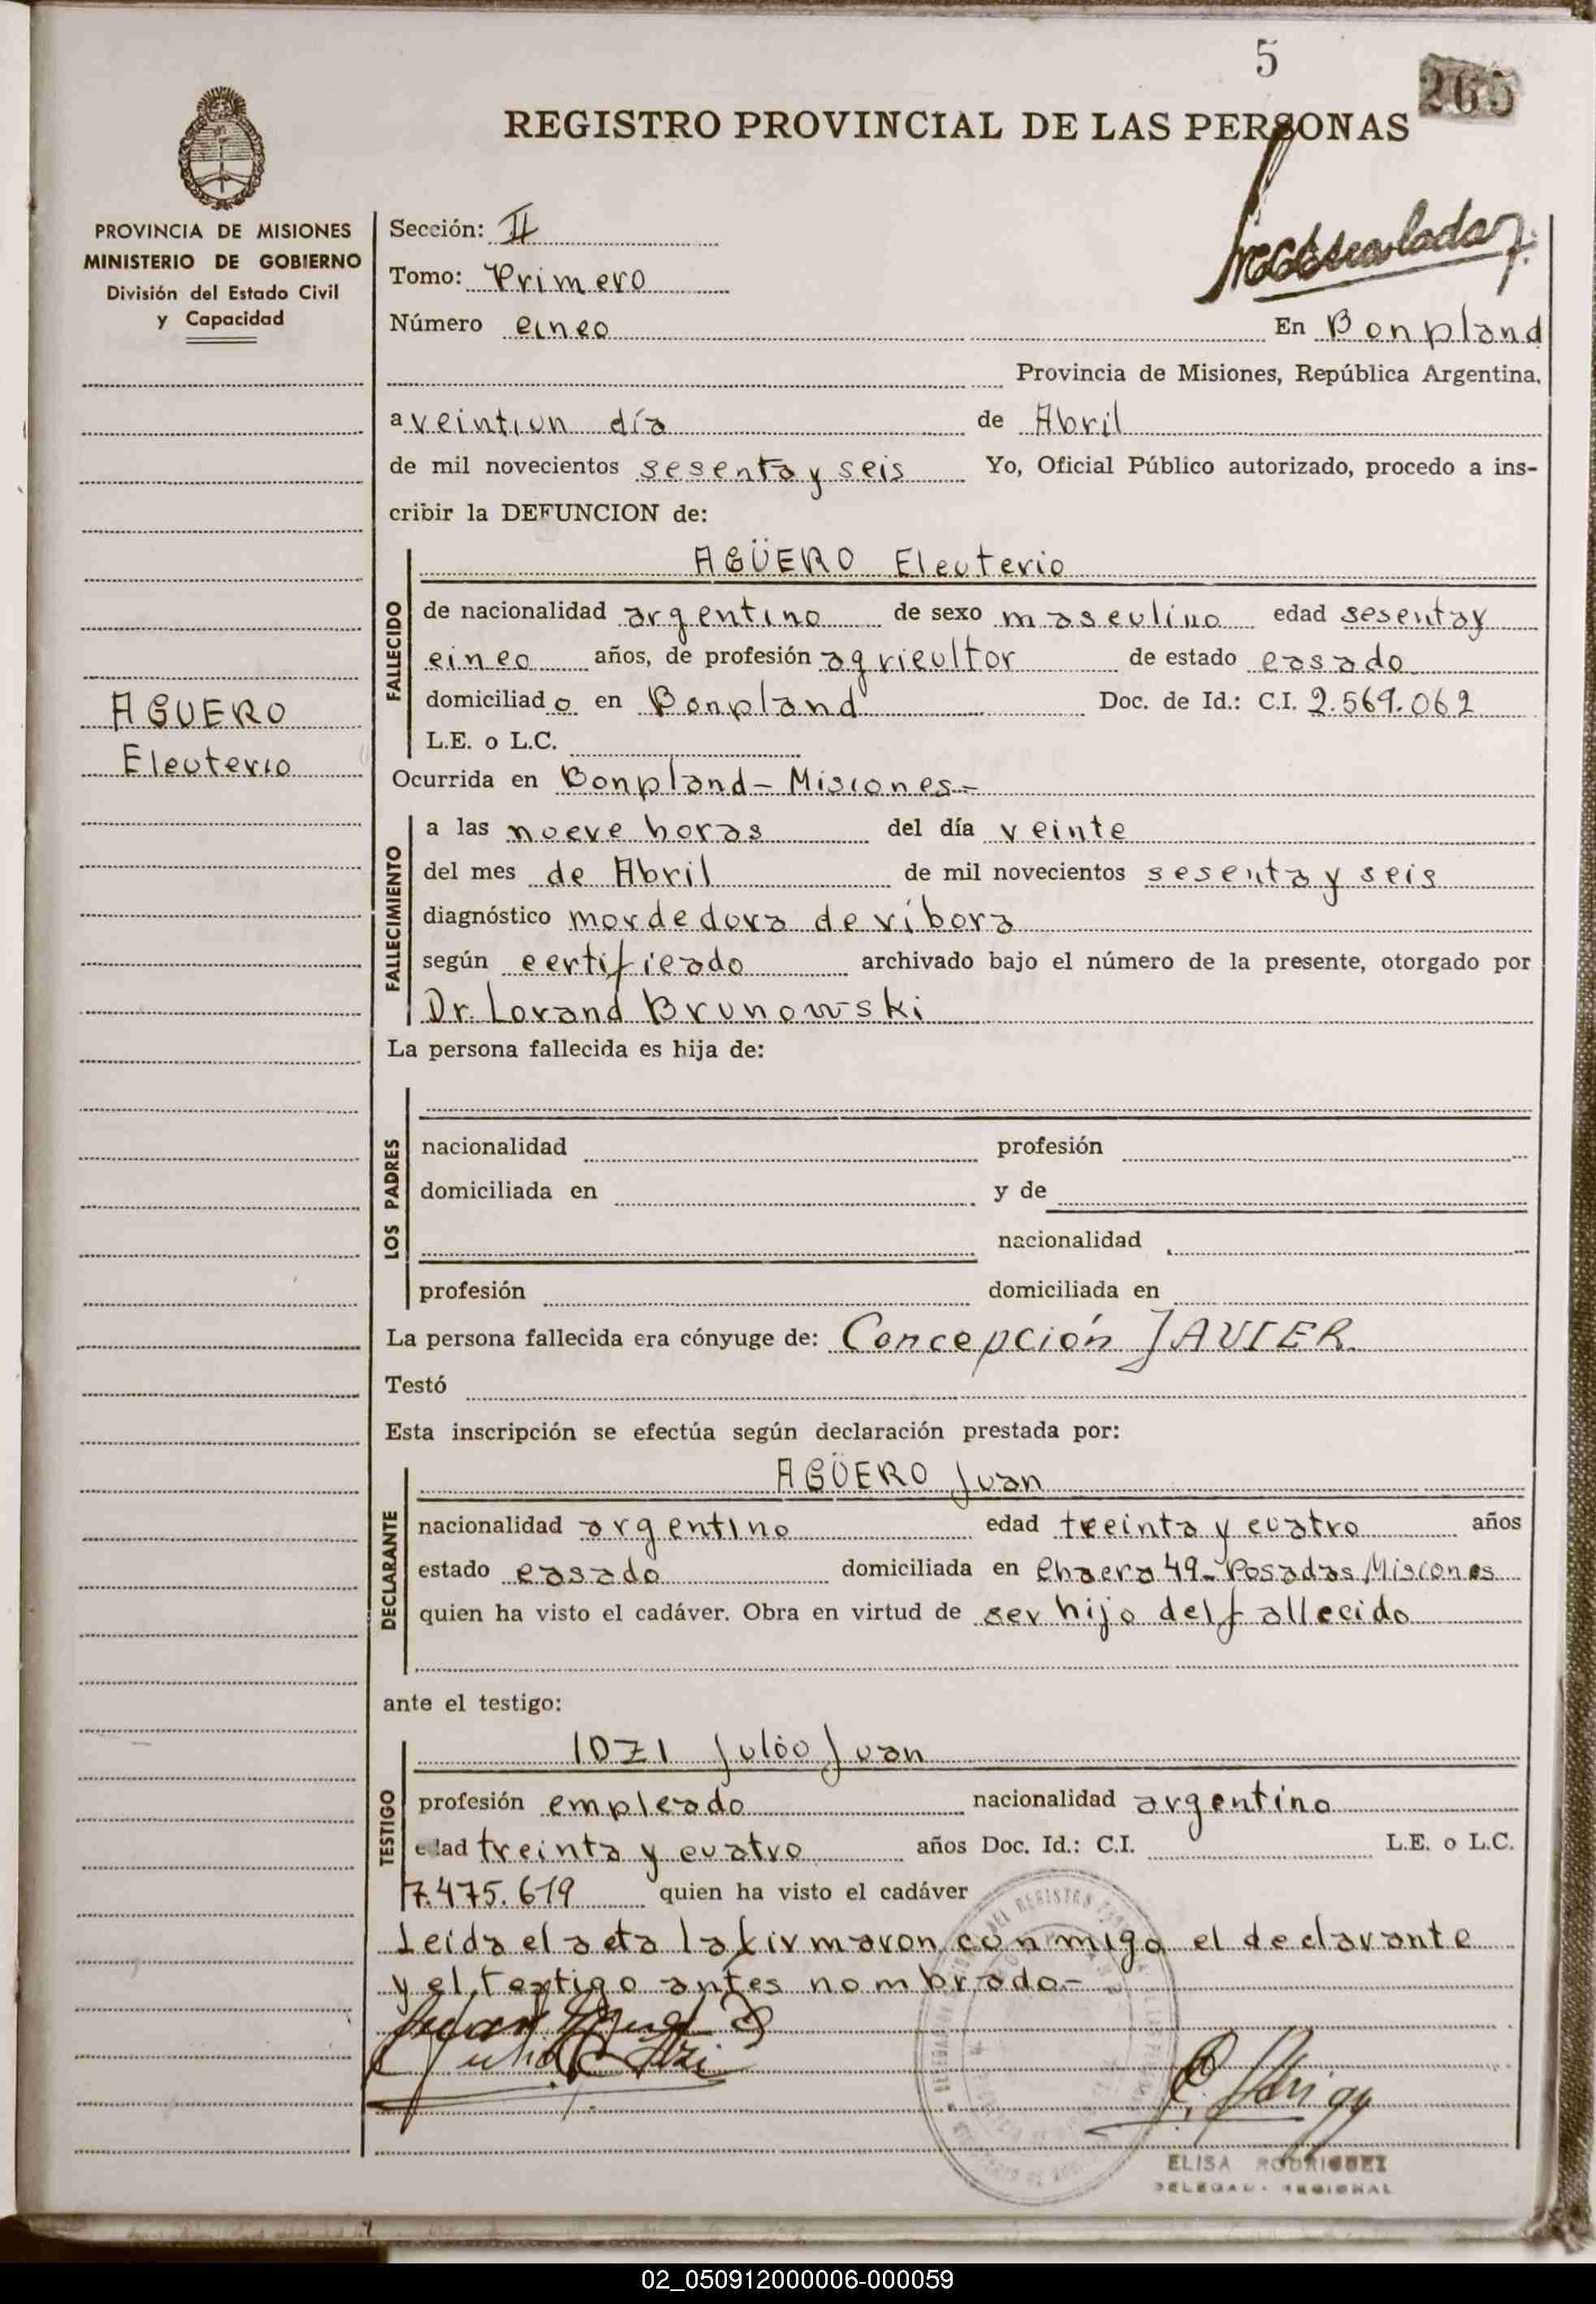 5
265
REGISTRO PROVINCIAL DE LAS PERSONAS
PROVINCIA DE MISIONES
MINISTERIO DE GOBIERNO
División del Estado Civil
y Capacidad
Sección: II
Tomo: Primero
Número cinco En Bonpland
Provincia de Misiones, República Argentina,
a veintiun día de Abril
de mil novecientos sesenta y seis Yo, Oficial Público autorizado, procedo a ins-
cribir la DEFUNCION de:
AGÜERO Eleuterio
FALLECIDO
de nacionalidad argentino de sexo masculino edad sesenta y
cinco años, de profesión agricultor de estado casado
domiciliado en Bonpland Doc. de Id.: C.I. 2.569.062
L.E. o L.C.
AGUERO
Eleuterio
Ocurrida en Bonpland - Misiones.-
FALLECIMIENTO
a las nueve horas del día veinte
del mes de Abril de mil novecientos sesenta y seis
diagnóstico mordedura de víbora
según certificado archivado bajo el número de la presente, otorgado por
Dr. Lorand Brunowski
La persona fallecida es hija de:
LOS PADRES
nacionalidad profesión
domiciliada en y de
nacionalidad
profesión domiciliada en
La persona fallecida era cónyuge de: Concepción JAVIER
Testó
Esta inscripción se efectúa según declaración prestada por:
AGÜERO Juan
DECLARANTE
nacionalidad argentino edad treinta y cuatro años
estado casado domiciliada en Chacra 49- Posadas Misiones
quien ha visto el cadáver. Obra en virtud de ser hijo del fallecido
ante el testigo:
IOZI Julio Juan
TESTIGO
profesión empleado nacionalidad argentino
edad treinta y cuatro años Doc. Id.: C.I. L.E. o L.C.
7.475.619 quien ha visto el cadáver
Leida el acta la firmaron conmigo el declarante
y el testigo antes nombrado.-
ELISA RODRIGUEZ
DELEGADA REGIONAL
02_050912000006-000059